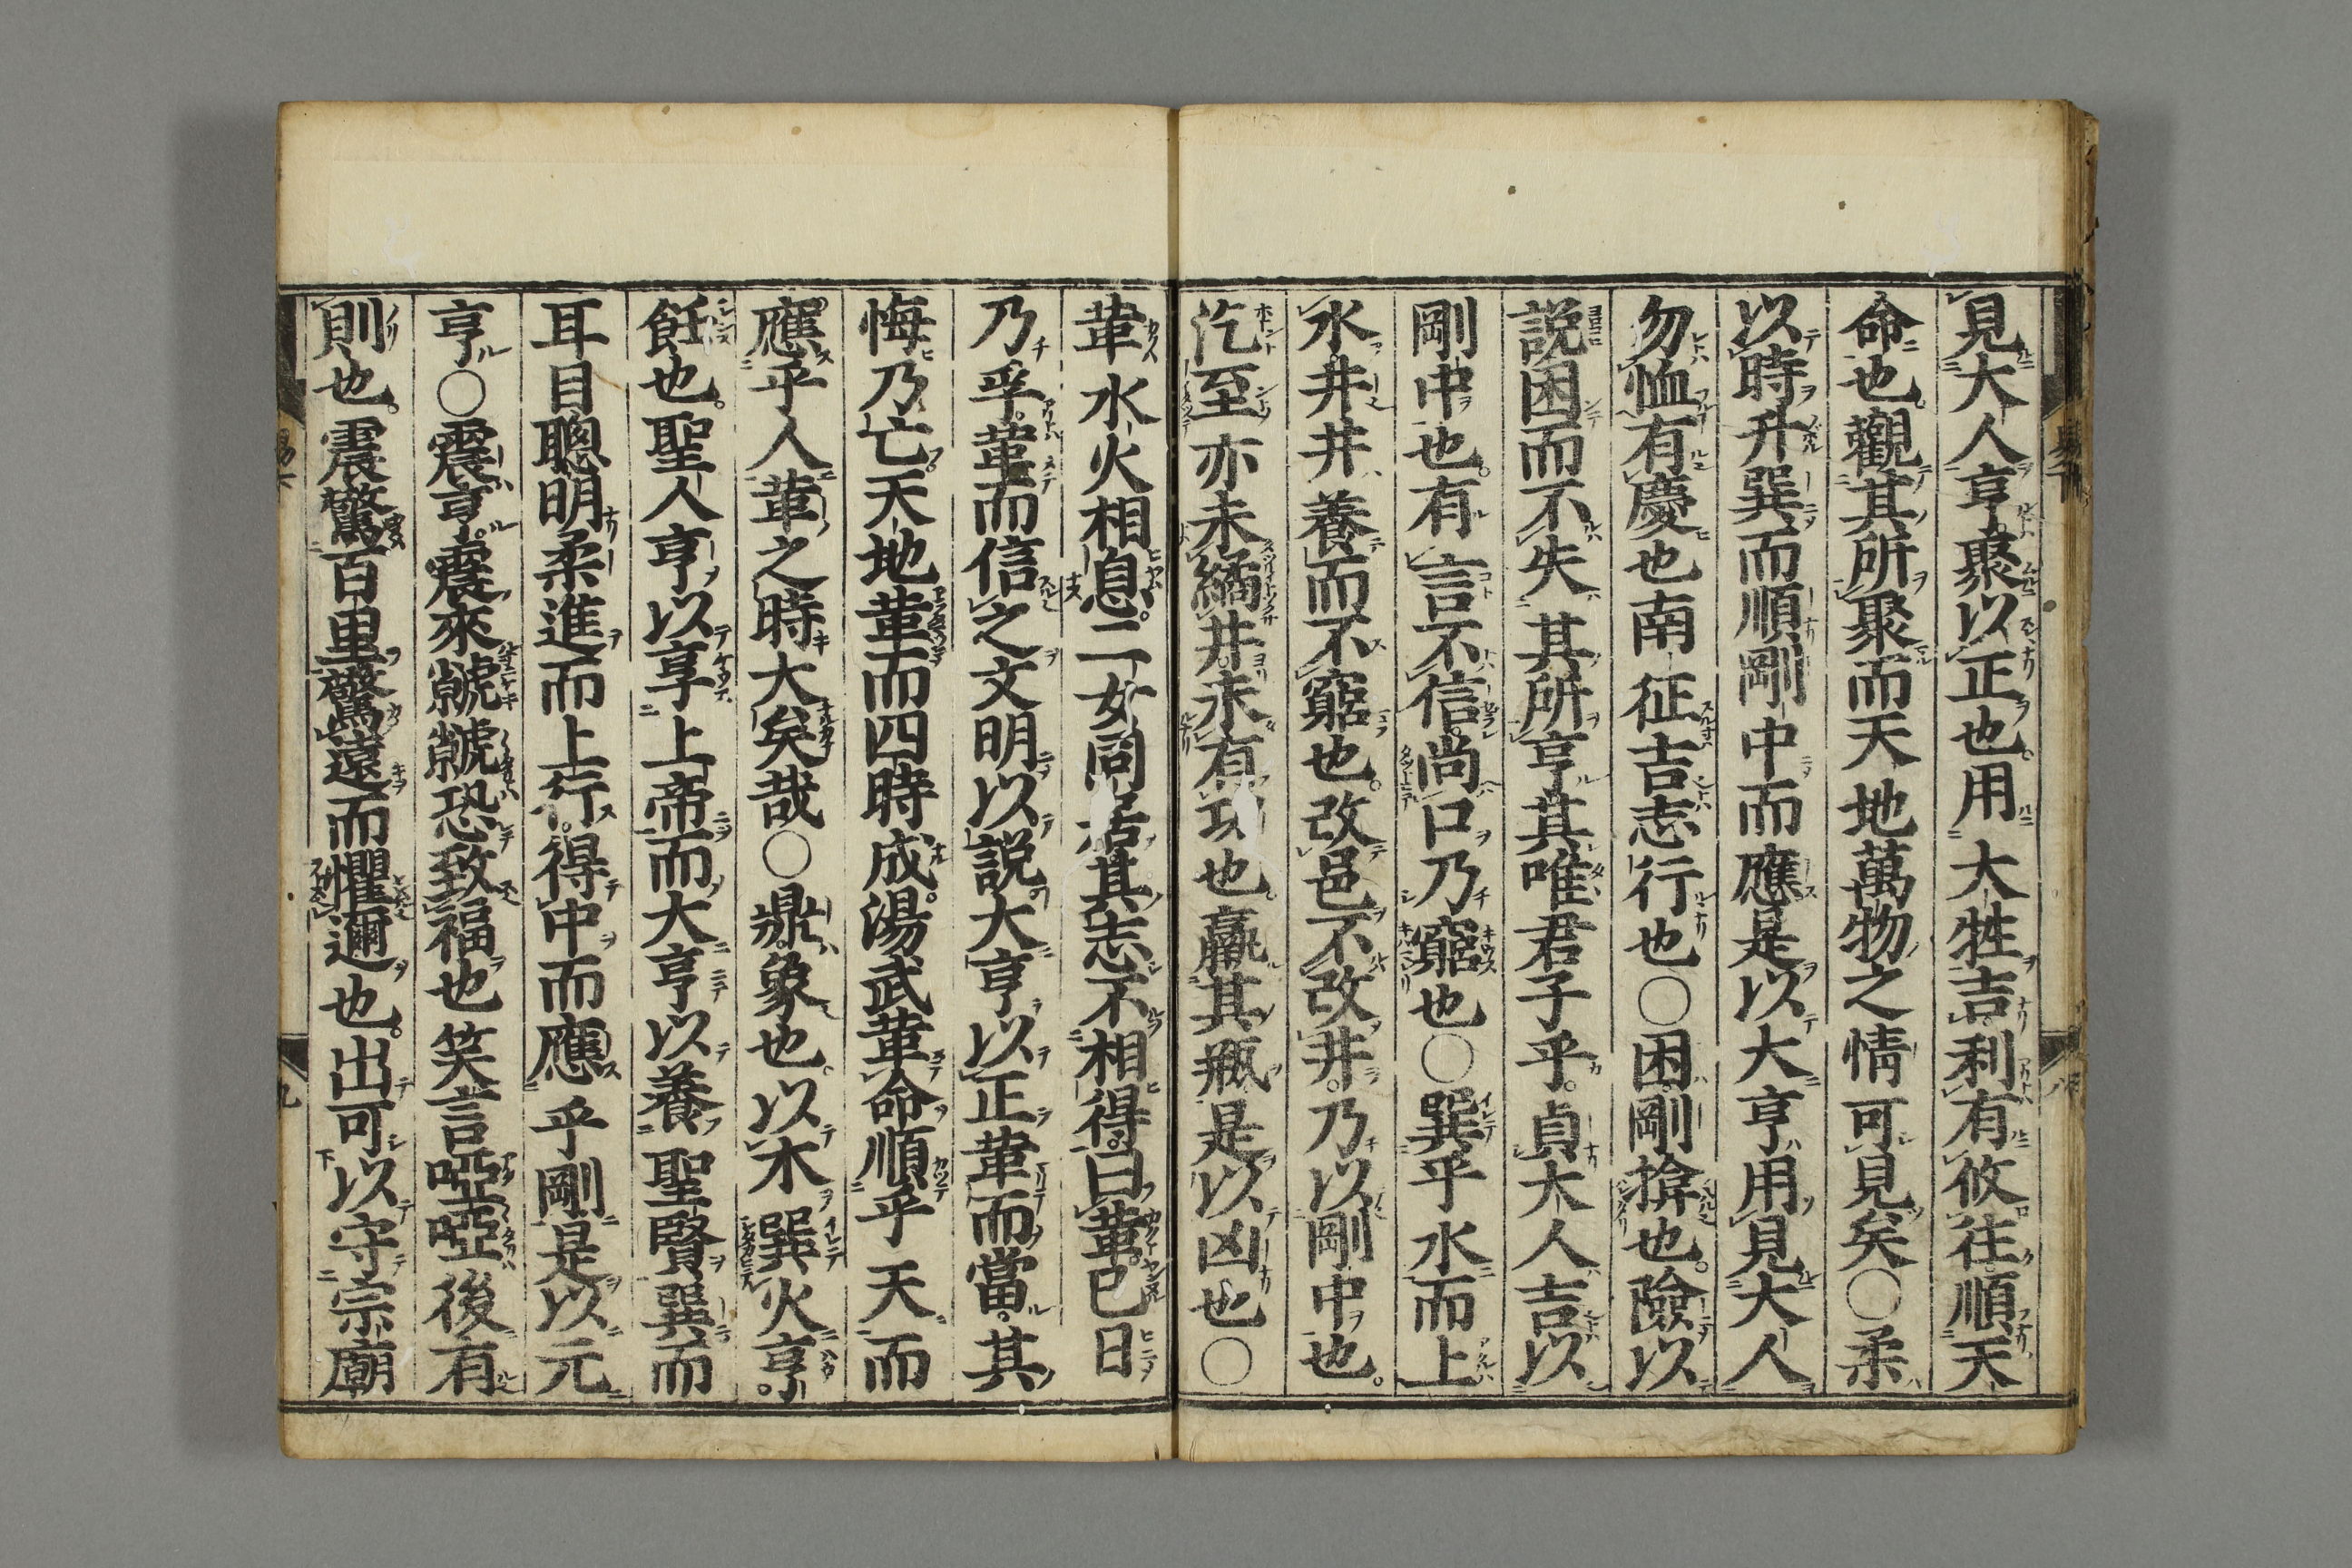 見大人亨。聚以正也。用大牲吉。利有攸往。順天
命也。觀其所聚而天地萬物之情可見矣〇柔
以時升巽而順剛中而應是以大亨用見大人
勿恤有慶也南征吉志行也〇困剛揜也。險以
説困而不失其所亨其唯君子乎。貞大人吉以
剛中也。有言不信。尚口乃窮也〇巽乎水而上
水。井井養而不窮也。改邑不改井。乃以剛中也。
汔至亦未繘井。未有功也。羸其瓶是以凶也〇
革水火相息。二女同居其志不相得。曰革。已日
乃孚。革而信之文明以説大亨以正革而當。其
悔乃亡。天地革而四時成。湯武革命順乎天而
應乎人革之時大矣哉〇鼎。象也。以木巽火亨。
飪也。聖人亨以享上帝而大亨以養聖賢巽而
耳目聰明柔進而上行。得中而應乎剛是以元
亨〇震亨。震來虩虩恐致福也笑言啞啞後有
則也。震驚百里驚遠而懼邇也。出可以守宗廟